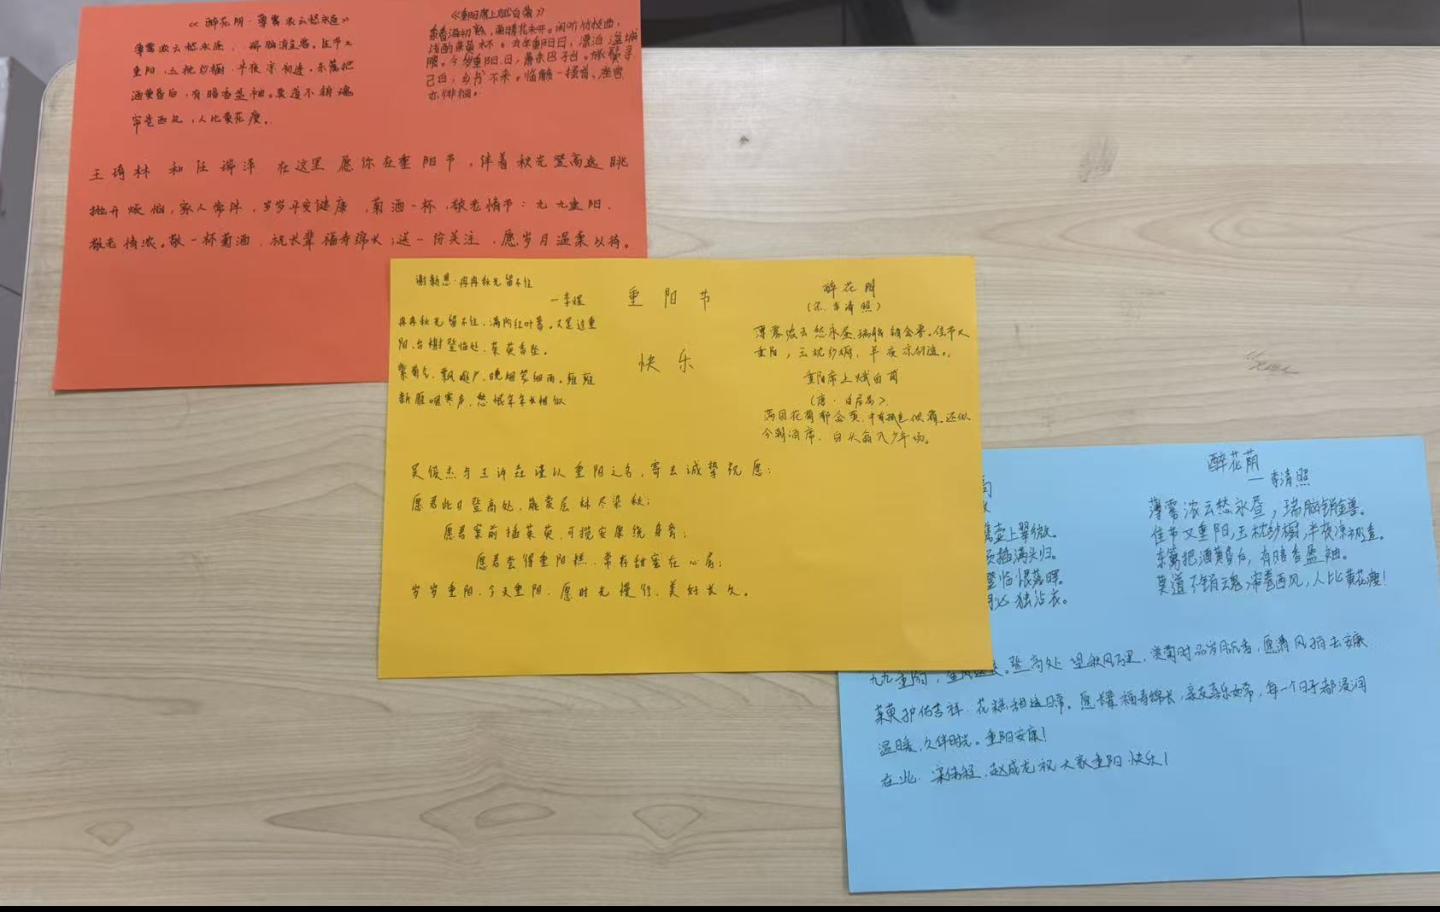 《醉花阴·薄雾浓云愁永昼》
薄雾浓云愁永昼,瑞脑消金兽。佳节又
重阳,玉枕纱橱,半夜凉初透。东篱把
酒黄昏后,有暗香盈袖。莫道不销魂
帘卷西风,人比黄花瘦。
《重阳席上赋白菊》
闲听竹枝曲,
浅酌茱萸杯。去年重阳日,漂泊湓城
隈。今岁重阳日,萧条巴子台。旅鬓寻
已白,乡书久不来。临觞一搔首,座客
亦徘徊。
王琦林 和 任 泽 在这里 愿你在重阳节,伴着秋光登高远眺
抛开烦恼,家人常伴,岁岁平安健康,菊酒一杯,敬老情节:九九重阳,
敬老情浓。敬一杯菊酒,祝长辈福寿绵长;送一份关注,愿岁月温柔以待。
谢新恩·冉冉秋光留不住
—李煜
冉冉秋光留不住,满阶红叶暮。又是过重
阳,台榭登临处,茱萸香坠。
紫菊气,飘庭户,晚烟笼细雨。雍雍
新雁咽寒声,愁恨年年长相似
重阳节
快乐
醉花阴
(宋·李清照)
薄雾浓云愁永昼,瑞脑销金兽。佳节又
重阳,玉枕纱橱,半夜凉初透。
重阳席上赋白菊
(唐·白居易)
满园花菊郁金黄,中有孤丛似霜。还似
今朝酒席,白头翁入少年场。
吴俊杰与王诗 谨以重阳之名,寄去诚挚祝愿:
愿君此日登高处,能赏层林尽染秋;
愿君案前插茱萸,可揽安康绕身旁;
愿君尝得重阳糕,常存甜蜜在心房;
岁岁重阳,今又重阳,愿时光慢行,美好长久。
壶上翠微。
须插满头归。
登临恨落晖。
何必独沾衣。
醉花阴
—李清照
薄雾浓云愁永昼,瑞脑销金兽。
佳节又重阳,玉枕纱橱,半夜凉初透。
东篱把酒黄昏后,有暗香盈袖。
莫道不销魂,帘卷西风,人比黄花瘦!
九九重阳,登高处望秋风万里,赏菊时品岁月沉香,愿清风拂去
茱萸护佑吉祥,花糕相连日常。愿长辈福寿绵长,亲友喜乐如常,每一个日子都浸润
温暖,久伴时光。重阳安康!
在此,梁伟程,赵成龙祝大家重阳快乐!